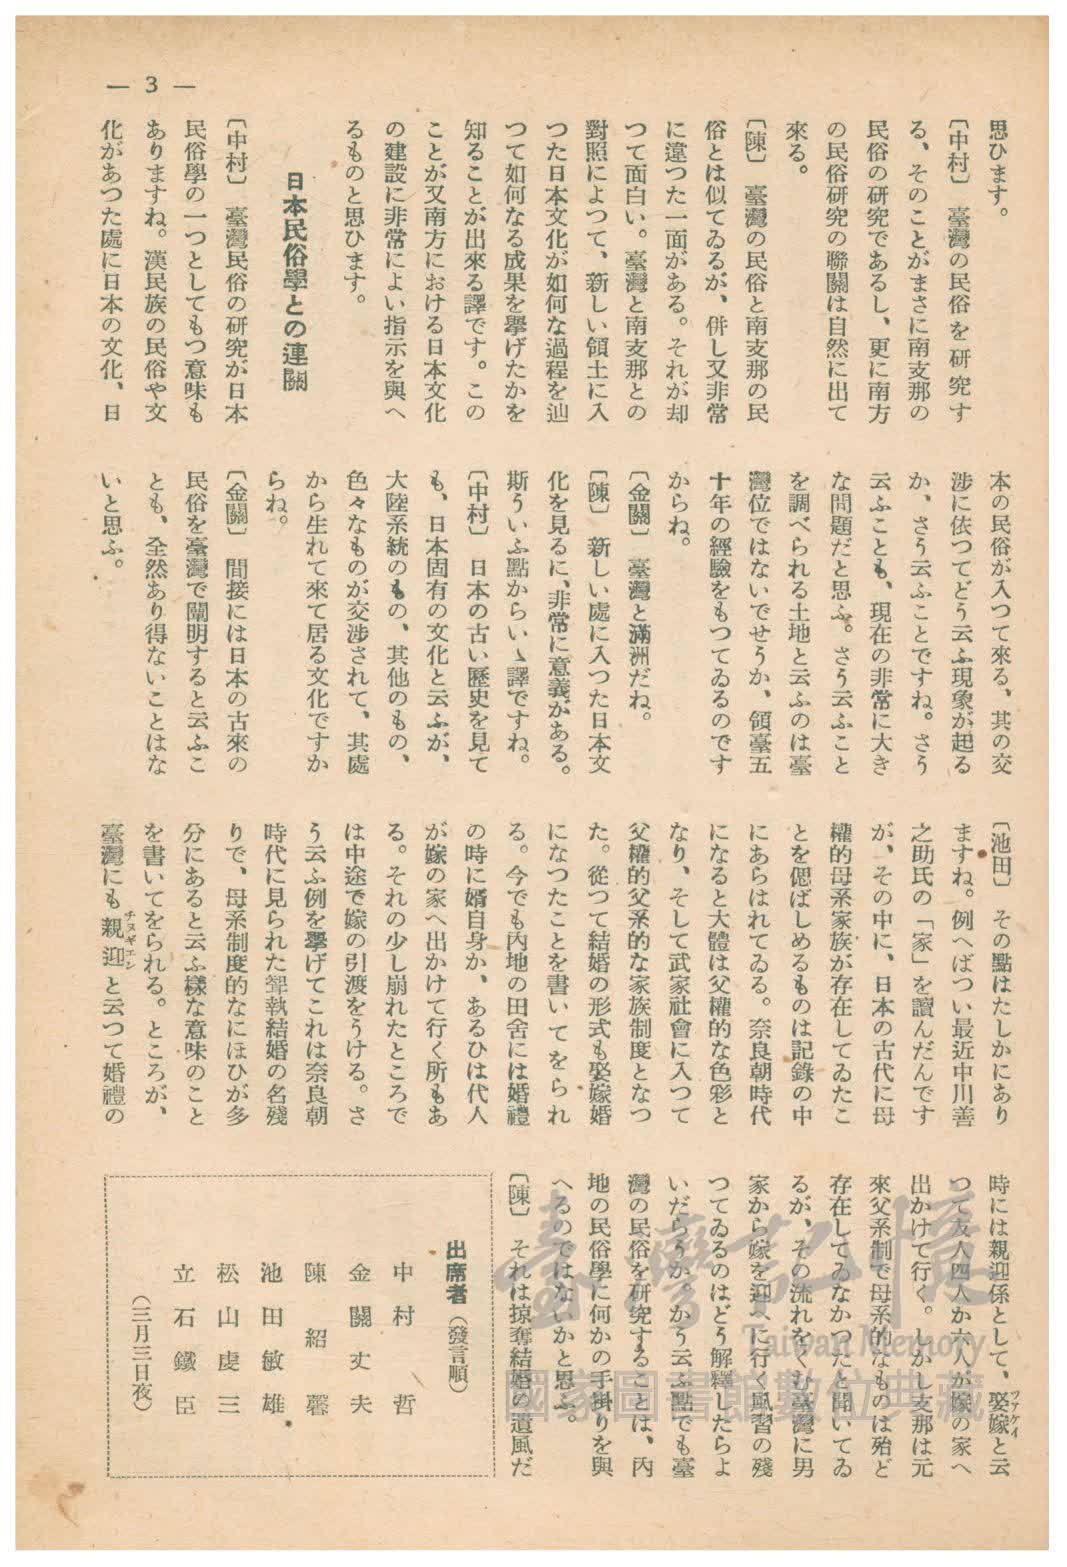 — 3 —
思ひます。
〔中村〕 臺灣の民俗を研究す
る、そのことがまさに南支那の
民俗の研究であるし、更に南方
の民俗研究の聯關は自然に出て
來る。
〔陳〕 臺灣の民俗と南支那の民
俗とは似てゐるが、併し又非常
に違つた一面がある。それが却
つて面白い。臺灣と南支那との
對照によつて、新しい領土に入
つた日本文化が如何な過程を辿
つて如何なる成果を擧げたかを
知ることが出來る譯です。この
ことが又南方における日本文化
の建設に非常によい指示を與へ
るものと思ひます。
日本民俗學との連關
〔中村〕 臺灣民俗の研究が日本
民俗學の一つとしてもつ意味も
ありますね。漢民族の民俗や文
化があつた處に日本の文化、日
本の民俗が入つて來る、其の交
涉に依つてどう云ふ現象が起る
か、さう云ふことですね。さう
云ふことも、現在の非常に大き
な問題だと思ふ。さう云ふこと
を調べられる土地と云ふのは臺
灣位ではないでせうか、領臺五
十年の經驗をもつてゐるのです
からね。
〔金關〕 臺灣と滿洲だね。
〔陳〕 新しい處に入つた日本文
化を見るに、非常に意義がある。
斯ういふ點からいゝ譯ですね。
〔中村〕 日本の古い歷史を見て
も、日本固有の文化と云ふが、
大陸系統のもの、其他のもの、
色々なものが交涉されて、其處
から生れて來て居る文化ですか
らね。
〔金關〕 間接には日本の古來の
民俗を臺灣で闡明すると云ふこ
とも、全然あり得ないことはな
いと思ふ。
〔池田〕 その點はたしかにあり
ますね。例へばつい最近中川善
之助氏の「家」を讀んだんです
が、その中に、日本の古代に母
權的母系家族が存在してゐたこ
とを偲ばしめるものは記錄の中
にあらはれてゐる。奈良朝時代
になると大體は父權的な色彩と
なり、そして武家社會に入つて
父權的父系的な家族制度となつ
た。從つて結婚の形式も娶嫁婚
になつたことを書いてをられ
る。今でも內地の田舍には婚禮
の時に婿自身か、あるひは代人
が嫁の家へ出かけて行く所もあ
る。それの少し崩れたところで
は中途で嫁の引渡をうける。さ
う云ふ例を擧げてこれは奈良朝
時代に見られた聟執結婚の名殘
りで、母系制度的なにほひが多
分にあると云ふ樣な意味のこと
を書いてをられる。ところが、
臺灣にも親迎チヌギエンと云つて婚禮の
時には親迎係として、娶嫁ツァケイと云
つて友人四人か六人が嫁の家へ
出かけて行く。しかし支那は元
來父系制で母系的なものは殆ど
存在してゐなかつたと聞いてゐ
るが、その流れをくむ臺灣に男
家から嫁を迎へに行く風習の殘
つてゐるのはどう解釋したらよ
いだらうか。かう云ふ點でも臺
灣の民俗を研究することは、內
地の民俗學に何かの手掛りを與
へるのではないかと思ふ。
〔陳〕 それは掠奪結婚の遺風だ
出席者（發言順）
中村哲
金關丈夫
陳紹馨
池田敏雄
松山虔三
立石鐵臣
（三月三日夜）
臺灣記憶
Taiwan Memory
國家圖書館數位典藏